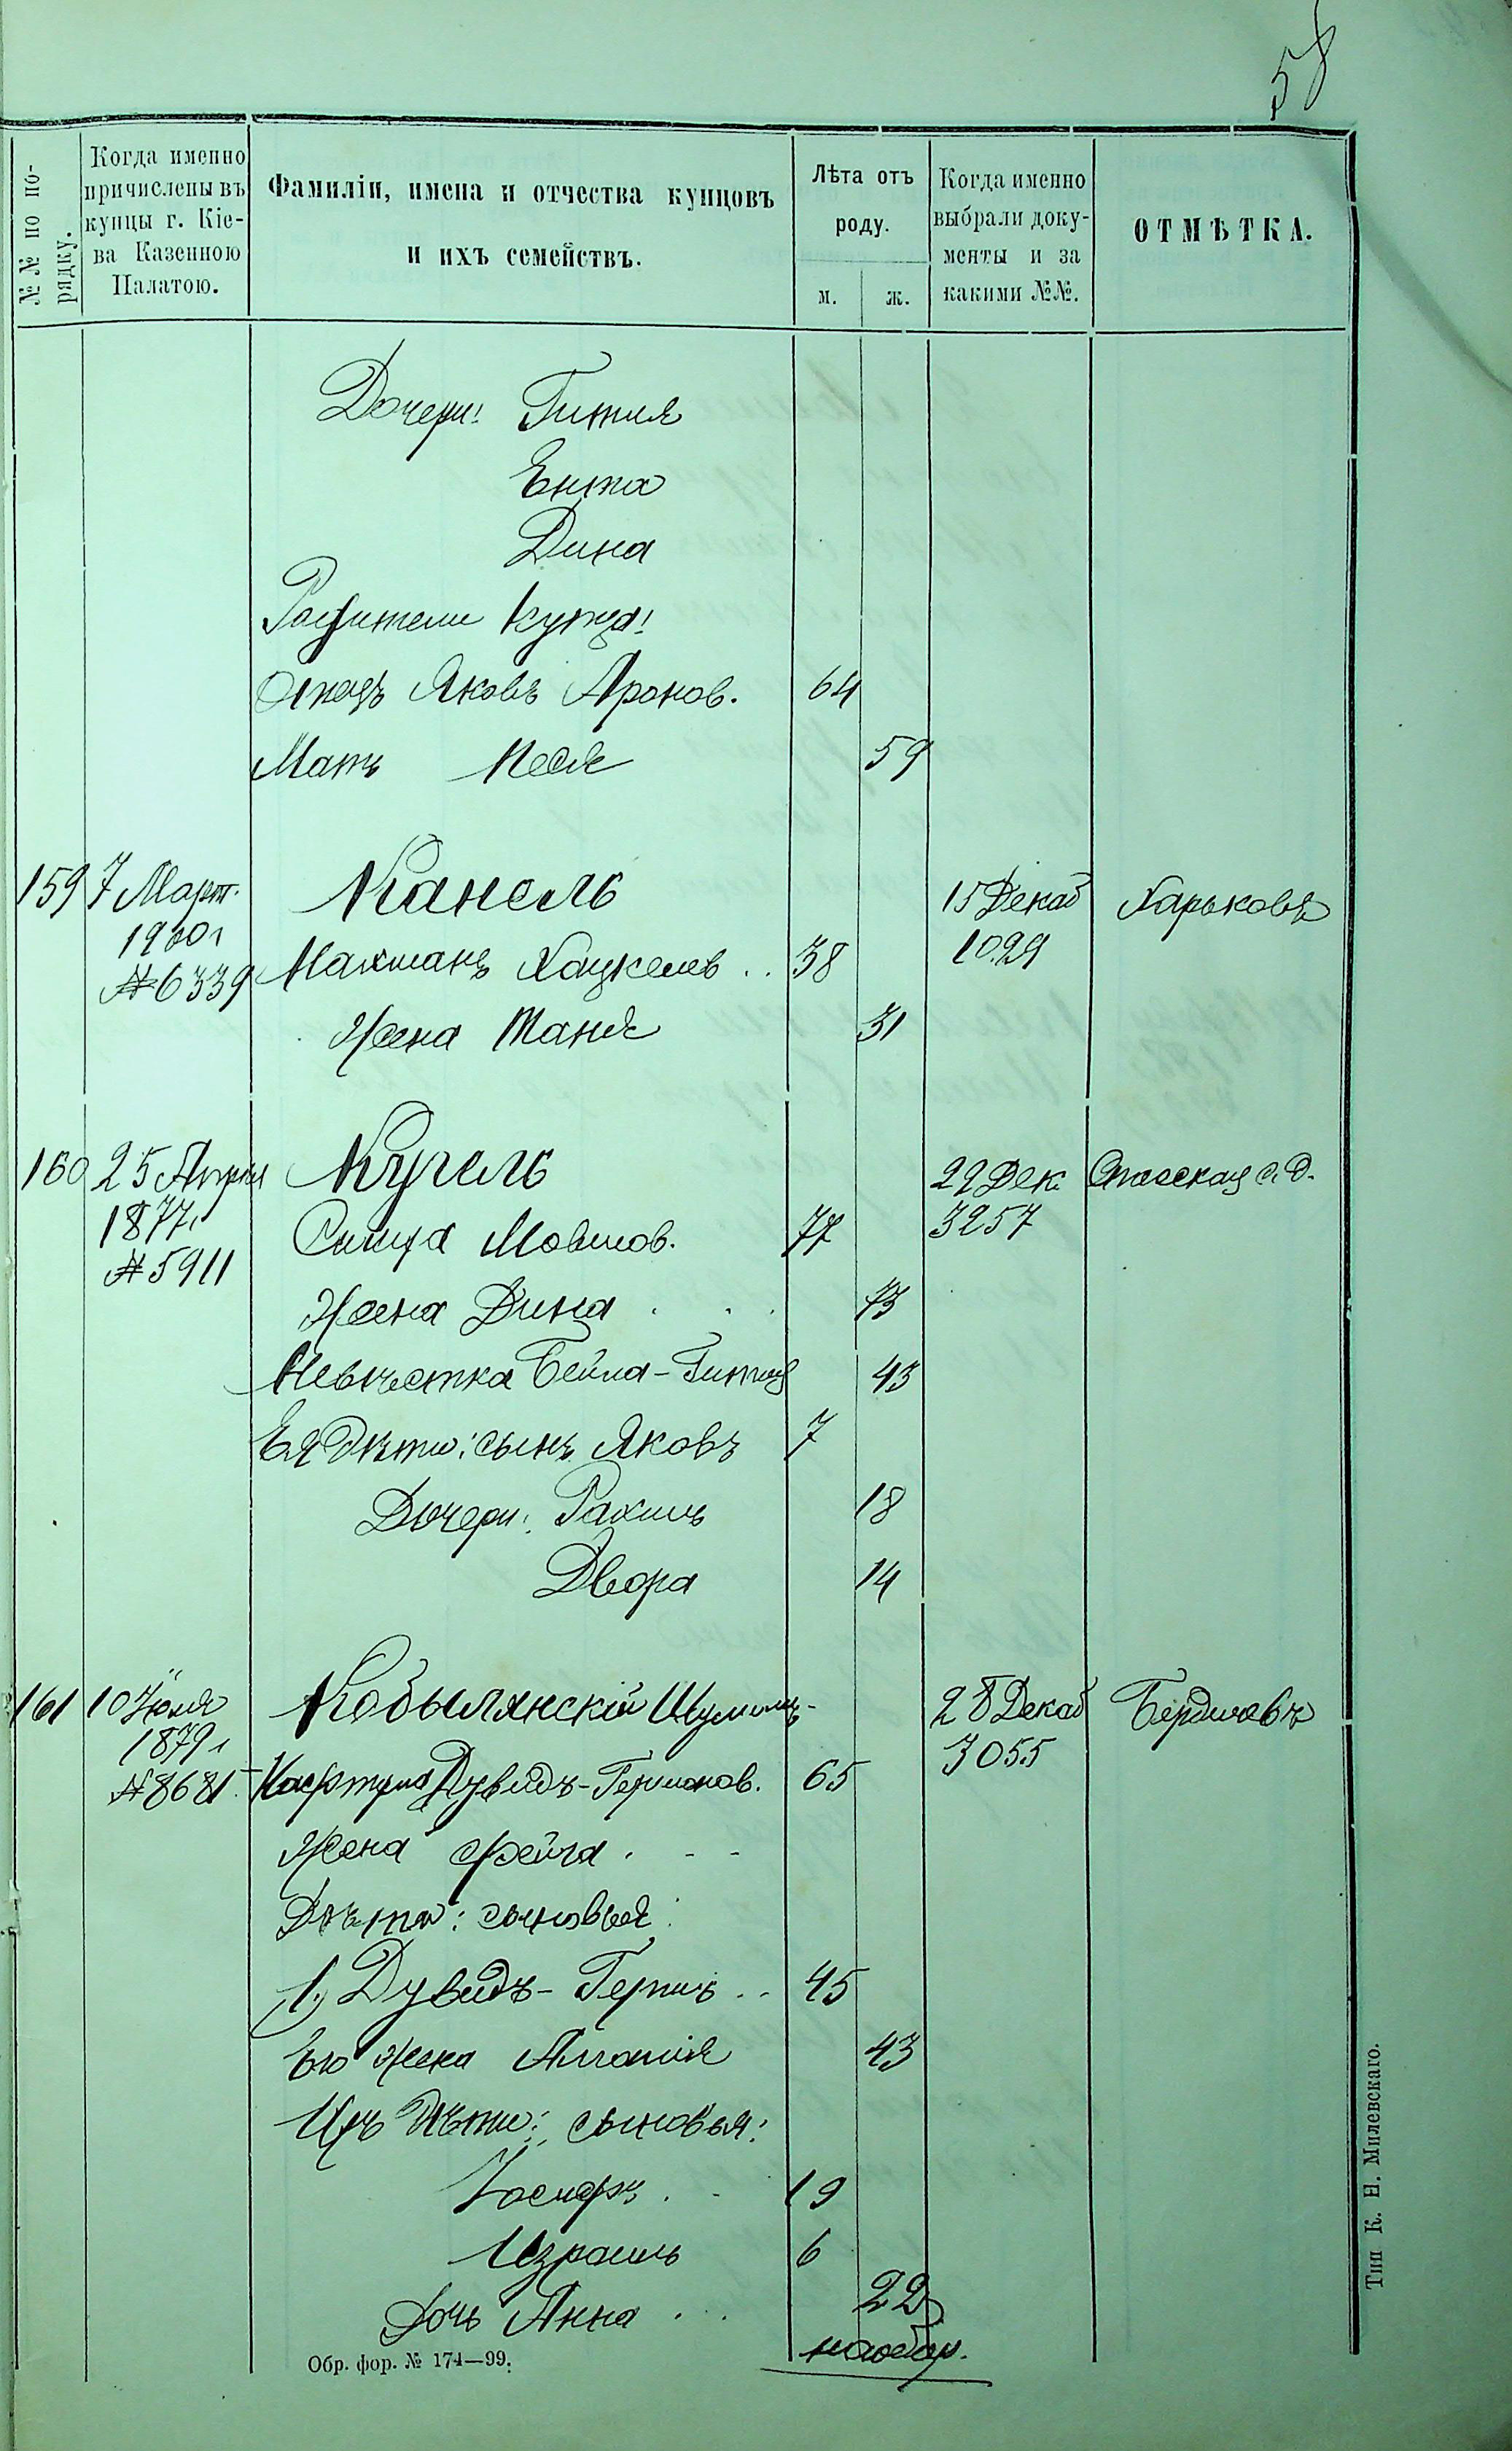 58
№№ по по-
рядку.
Когда именно
причислены въ
купцы г. Кіе-
ва Казенною
Палатою.
Фамиліи, имена и отчества купцовъ
и ихъ семействъ.
Лѣта отъ
роду.
м. ж.
Когда именно
выбрали доку-
менты и за
какими №№.
ОТМѢТКА.
Дочери: Гитля
Ента
Дина
Родители купца:
Отецъ Яковъ Аронов. 64
Мать Песя 59
159 7 Март. Канель 15 Декаб Харьковъ
1900 г 1029
№ 6339 Нахманъ Хацкелев .. 38
Жена Таня 31
160 25 Апрѣля Кугель 22 Дек. Спасская с. д.
1877 г 3257
№ 5911 Симха Мовшов. 77
Жена Дина . . . 73
Невѣстка Бейла-Гитля 43
Ея дѣти: сынъ Яковъ 7
Дочери: Рахиль 18
Двора 14
161 10 Іюля Кобылянскій Шумилъ- 28 Декаб Бердичевъ
1879 г 3055
№ 8681 Дувидъ-Гершонов. 65
Жена Фейга . - -
Дѣти: сыновья:
1) Дувидъ-Гершъ .. 45
Его жена 43
Ихъ дѣти: сыновья:
Іосифъ . - 19
Израиль 6
Дочь Анна . . . 22
на обор.
Обр. фор. № 174—99.
Тип К. Н. Милевскаго.